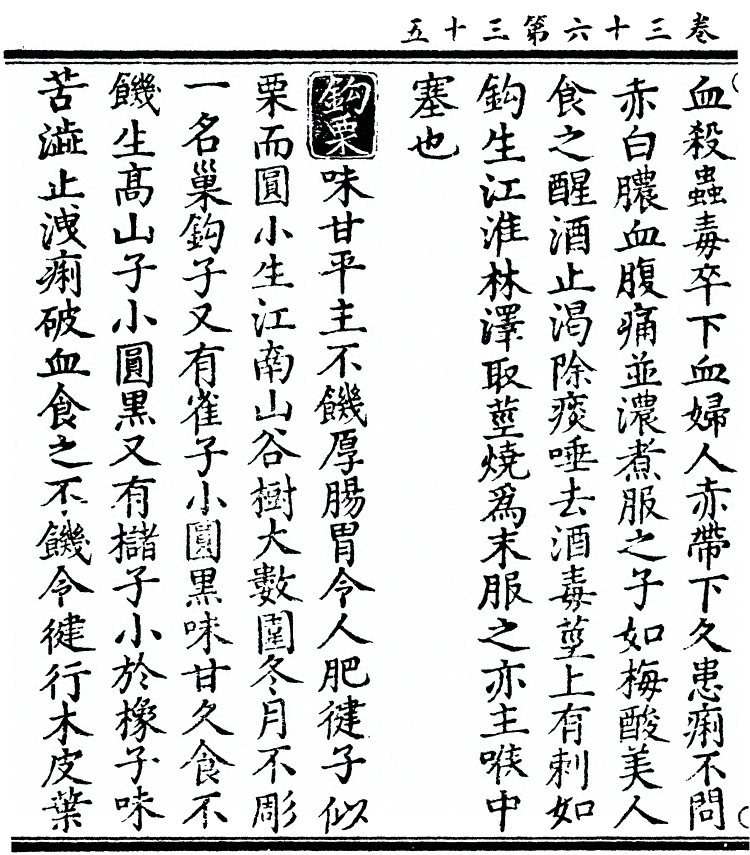 卷三十六第三十五
血殺蟲毒卒下血婦人赤帶下久患痢不問
赤白膿血腹痛並濃煮服之子如梅酸美人
食之醒酒止渴除痰唾去酒毒莖上有刺如
鈎生江淮林澤取莖燒爲末服之亦主喉中
塞也
鈎栗味甘平主不饑厚腸胃令人肥健子似
栗而圓小生江南山谷樹大數圍冬月不彫
一名巢鈎子又有雀子小圓黑味甘久食不
饑生髙山子小圓黑又有櫧子小於橡子味
苦澁止洩痢破血食之不饑令健行木皮葉